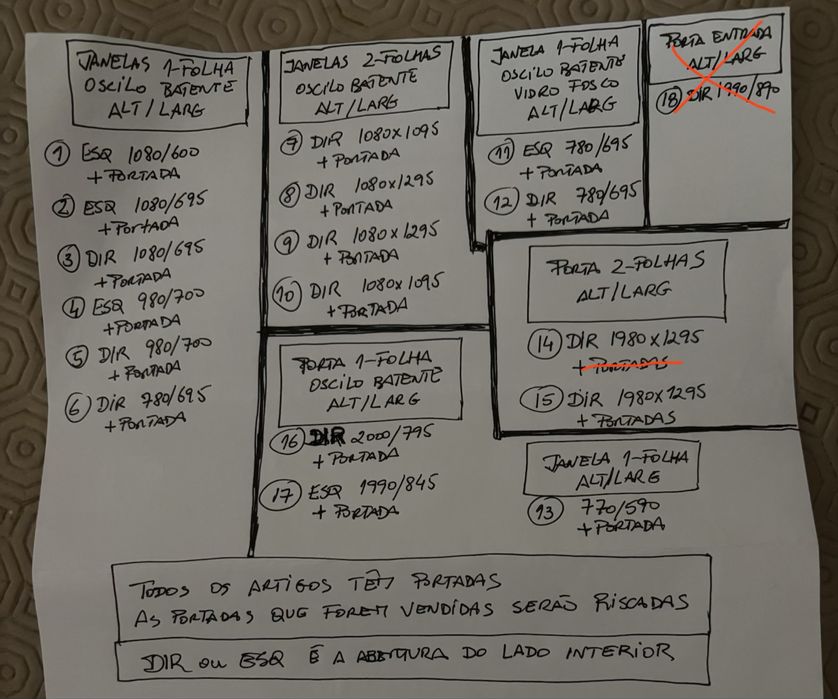 JANELAS 1-FOLHA
OSCILO BATENTE
ALT/LARG
1 ESQ 1080/600
+ PORTADA
2 ESQ 1080/695
+ PORTADA
3 DIR 1080/695
+ PORTADA
4 ESQ 980/700
+ PORTADA
5 DIR 980/700
+ PORTADA
6 DIR 780/695
+ PORTADA
JANELAS 2-FOLHAS
OSCILO BATENTE
ALT/LARG
7 DIR 1080x1095
+ PORTADA
8 DIR 1080x1295
+ PORTADA
9 DIR 1080x1295
+ PORTADA
10 DIR 1080x1095
+ PORTADA
JANELA 1-FOLHA
OSCILO BATENTE
VIDRO FOSCO
ALT/LARG
11 ESQ 780/695
+ PORTADA
12 DIR 780/695
+ PORTADA
PORTA ENTRADA
ALT/LARG
18 DIR 1990/890
PORTA 2-FOLHAS
ALT/LARG
14 DIR 1980x1295
+ PORTADAS
15 DIR 1980x1295
+ PORTADAS
PORTA 1-FOLHA
OSCILO BATENTE
ALT/LARG
16 DIR 2000/795
+ PORTADA
17 ESQ 1990/845
+ PORTADA
JANELA 1-FOLHA
ALT/LARG
13 770/590
+ PORTADA
TODOS OS ARTIGOS TÊM PORTADAS
AS PORTADAS QUE FOREM VENDIDAS SERÃO RISCADAS
DIR OU ESQ É A ABERTURA DO LADO INTERIOR